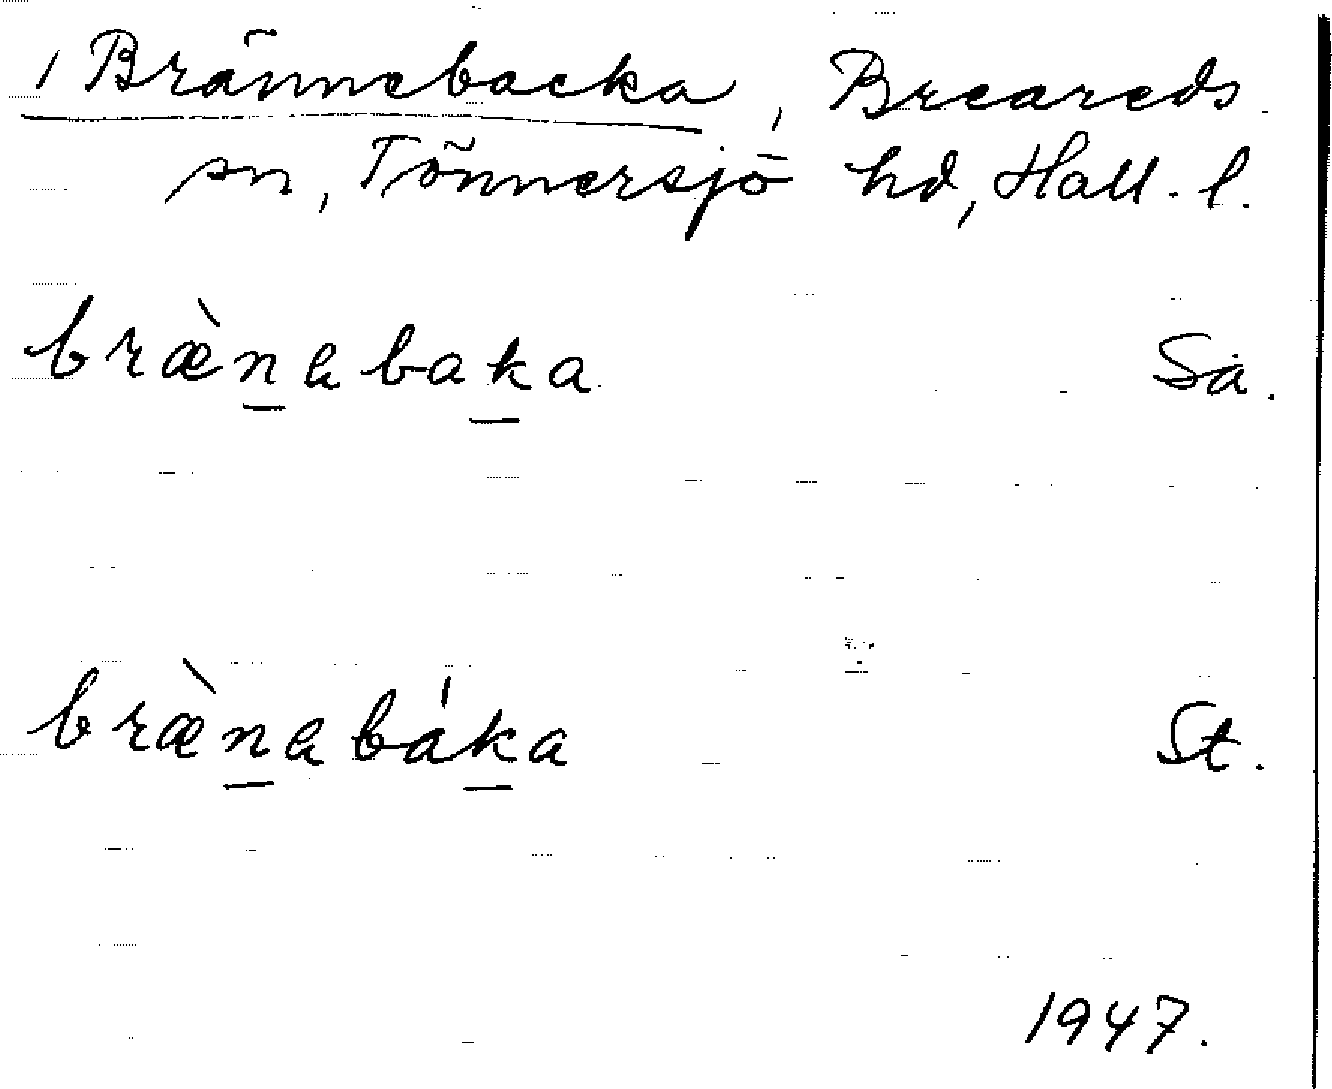 1 Brännebacka, Breareds
sn, Tönnersjö hd, Hall. l.
bræ̀n̲abak̲a Sä.
bræ̀n̲abák̲a St.
1947.